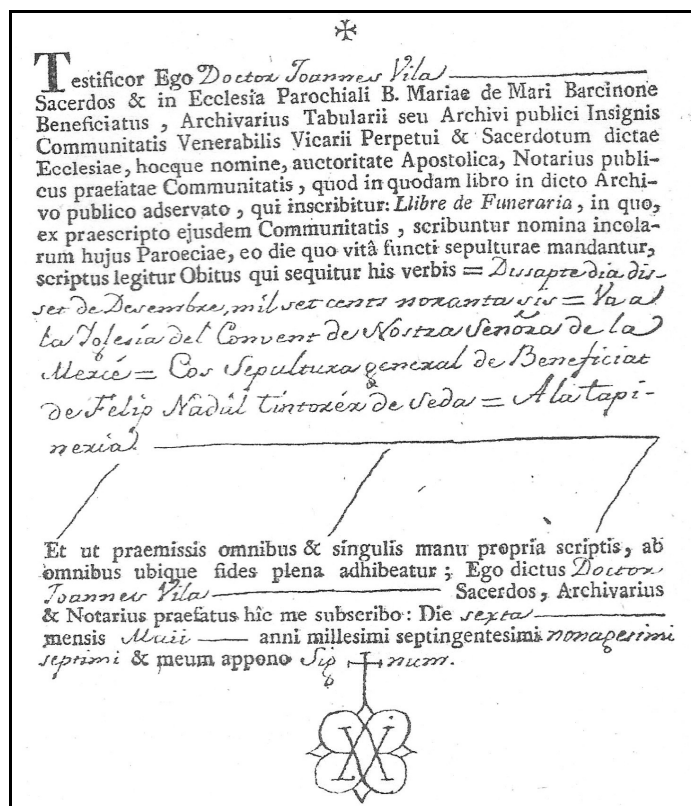 Testificor Ego Doctor Joannes Vila
Sacerdos & in Ecclesia Parochiali B. Mariae de Mari Barcinone
Beneficiatus , Archivarius Tabularii seu Archivi publici Insignis
Communitatis Venerabilis Vicarii Perpetui & Sacerdotum dictae
Ecclesiae, hocque nomine, auctoritate Apostolica, Notarius publi-
cus praefatae Communitatis , quod in quodam libro in dicto Archi-
vo publico adservato , qui inscribitur: Llibre de Funeraria, in quo,
ex praescripto ejusdem Communitatis , scribuntur nomina incola-
rum hujus Paroeciae, eo die quo vitâ functi sepulturae mandantur,
scriptus legitur Obitus qui sequitur his verbis = Dissapte dia dis-
set de Desembre, mil set cents noranta sis = Va a
la Iglesia del Convent de Nostra Señora de la
Mercé = Cos Sepultura general de Beneficiat
de Felip Nadúl Tintorér de Seda = A la tapi-
neria.
Et ut praemissis omnibus & singulis manu propria scriptis, ab
omnibus ubique fides plena adhibeatur ; Ego dictus Doctor
Joannes Vila Sacerdos, Archivarius
& Notarius praefatus hîc me subscribo: Die sexta
mensis Maii anni millesimi septingentesimi nonagesimi
septimi & meum appono Sig num.